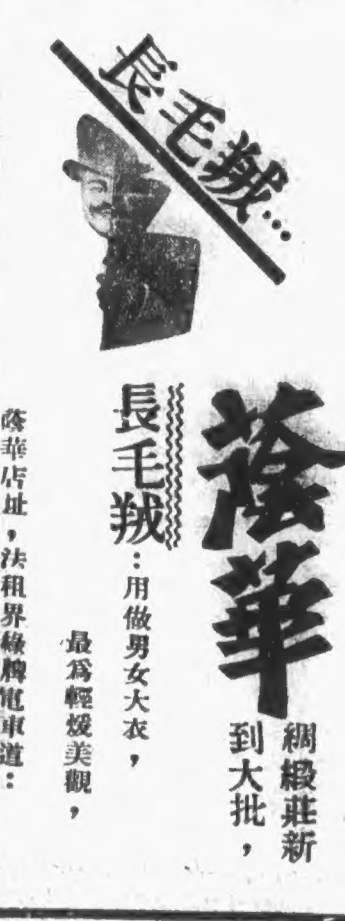 長毛羢…
蔭華
綢緞莊新
到大批，
長毛羢：用做男女大衣，
最爲輕煖美觀，
蔭華店址，法租界綠牌電車道：